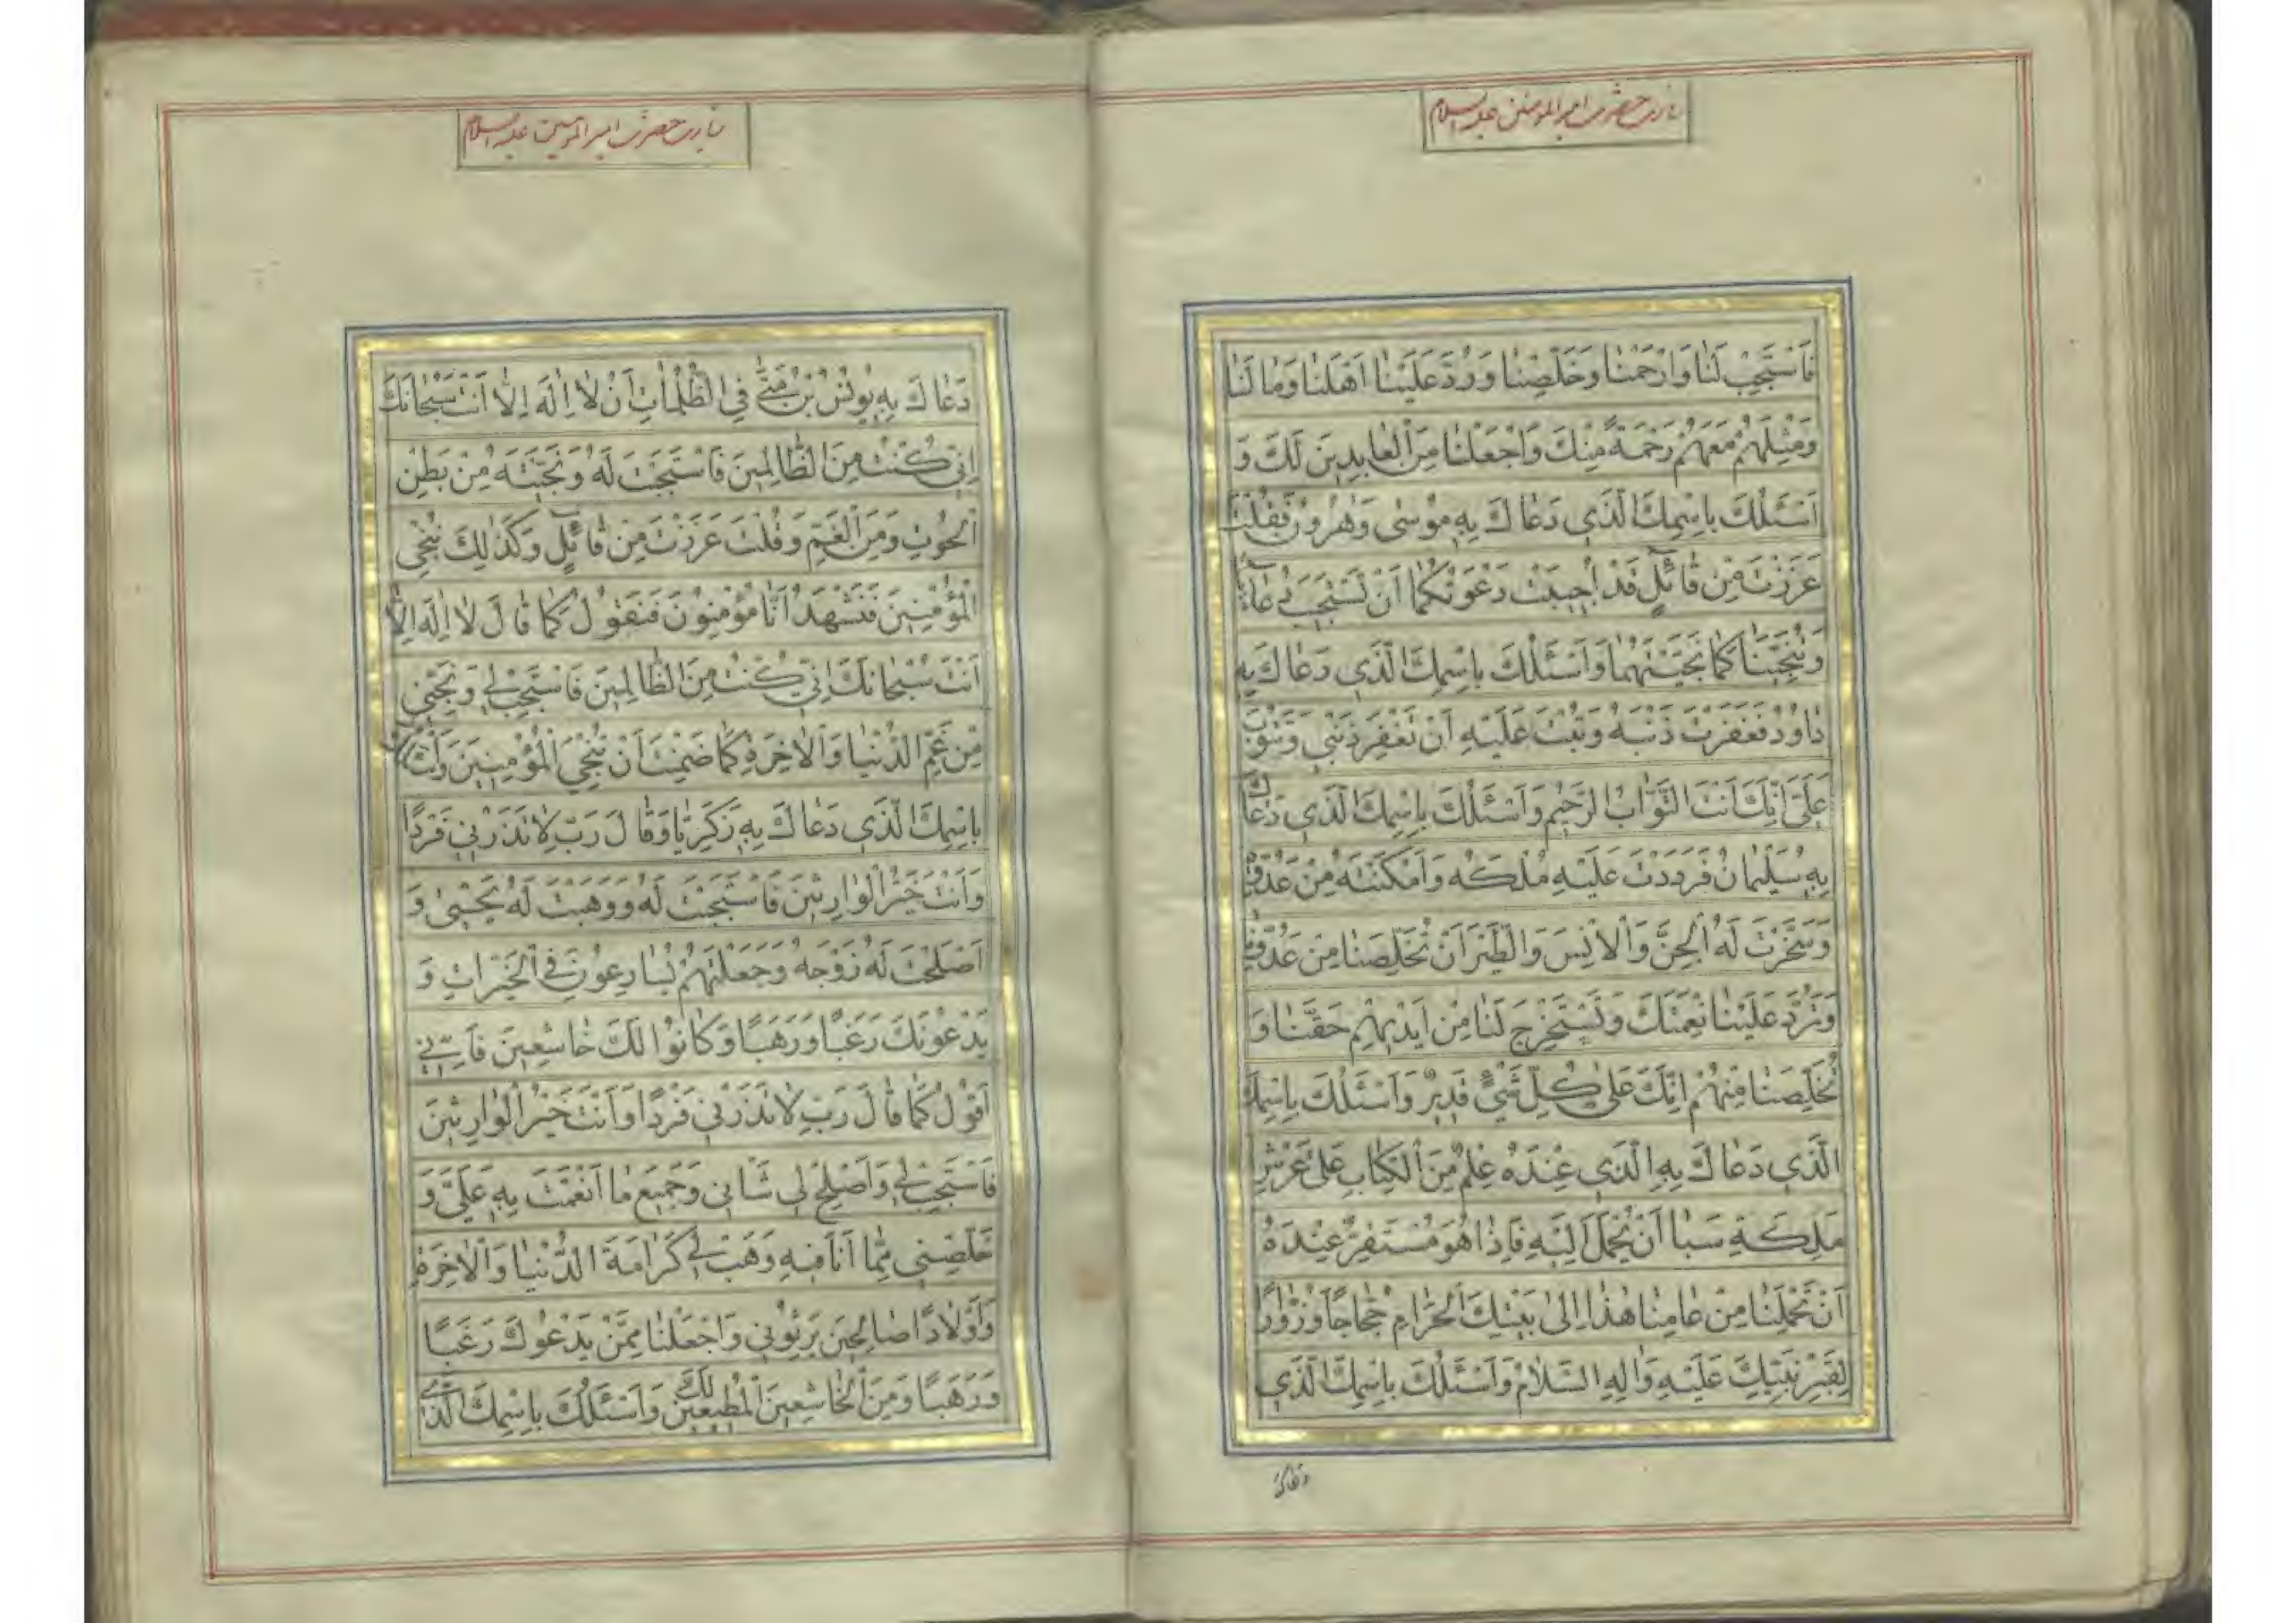 زيارت حضرت امير المؤمنين عليه السلام
فَاسْتَجِبْ لَنَا وَارْحَمْنَا وَخَلِّصْنَا وَرُدَّ عَلَيْنَا اَهْلَنَا وَمَا لَنَا
وَمِثْلَهُمْ مَعَهُمْ رَحْمَةً مِنْكَ وَاجْعَلْنَا مِنَ الْعَابِدِينَ لَكَ وَ
اَسْئَلُكَ بِاسْمِكَ الَّذِي دَعَاكَ بِهِ مُوسٰى وَهٰرُونُ فَقُلْتَ
عَزَزْتَ مِنْ قَائِلٍ قَدْ اُجِيبَتْ دَعْوَتُكُمَا اَنْ تَسْتَجِيبَ دُعَاءَنَا
وَتُنَجِّيَنَا كَمَا نَجَّيْتَهُمَا وَاَسْئَلُكَ بِاسْمِكَ الَّذِي دَعَاكَ بِهِ
دَاوُدُ فَغَفَرْتَ ذَنْبَهُ وَتُبْتَ عَلَيْهِ اَنْ تَغْفِرَ ذَنْبِي وَتَتُوبَ
عَلَيَّ اِنَّكَ اَنْتَ التَّوَّابُ الرَّحِيمُ وَاَسْئَلُكَ بِاسْمِكَ الَّذِي دَعَاكَ
بِهِ سُلَيْمَانُ فَرَدَدْتَ عَلَيْهِ مُلْكَهُ وَاَمْكَنْتَهُ مِنْ عَدُوِّهِ
وَسَخَّرْتَ لَهُ الْجِنَّ وَالْاِنْسَ وَالطَّيْرَ اَنْ تُخَلِّصَنَا مِنْ عَدُوِّنَا
وَتَرُدَّ عَلَيْنَا نِعْمَتَكَ وَتَسْتَخْرِجَ لَنَا مِنْ اَيْدِيهِمْ حَقَّنَا وَ
تُخَلِّصَنَا مِنْهُمْ اِنَّكَ عَلٰى كُلِّ شَيْءٍ قَدِيرٌ وَاَسْئَلُكَ بِاسْمِكَ
الَّذِي دَعَاكَ بِهِ الَّذِي عِنْدَهُ عِلْمٌ مِنَ الْكِتَابِ عَلٰى عَرْشِ
مَلِكَةِ سَبَا اَنْ تُحْمَلَ اِلَيْهِ فَاِذَا هُوَ مُسْتَقِرٌّ عِنْدَهُ
اَنْ تَحْمِلَنَا مِنْ عَامِنَا هٰذَا اِلٰى بَيْتِكَ الْحَرَامِ حُجَّاجًا وَزُوَّارًا
لِقَبْرِ نَبِيِّكَ عَلَيْهِ وَاٰلِهِ السَّلَامُ وَاَسْئَلُكَ بِاسْمِكَ الَّذِي
دعاك
زيارت حضرت امير المؤمنين عليه السلام
دَعَاكَ بِهِ يُونُسُ بْنُ مَتّٰى فِي الظُّلُمَاتِ اَنْ لَا اِلٰهَ اِلَّا اَنْتَ سُبْحَانَكَ
اِنِّي كُنْتُ مِنَ الظَّالِمِينَ فَاسْتَجَبْتَ لَهُ وَنَجَّيْتَهُ مِنْ بَطْنِ
الْحُوتِ وَمِنَ الْغَمِّ وَقُلْتَ عَزَزْتَ مِنْ قَائِلٍ وَكَذٰلِكَ نُنْجِي
الْمُؤْمِنِينَ فَنَشْهَدُ اَنَّا مُؤْمِنُونَ فَنَقُولُ كَمَا قَالَ لَا اِلٰهَ اِلَّا
اَنْتَ سُبْحَانَكَ اِنِّي كُنْتُ مِنَ الظَّالِمِينَ فَاسْتَجِبْ لِي وَنَجِّنِي
مِنْ غَمِّ الدُّنْيَا وَالْاٰخِرَةِ كَمَا ضَمِنْتَ اَنْ تُنْجِيَ الْمُؤْمِنِينَ وَاَسْئَلُكَ
بِاسْمِكَ الَّذِي دَعَاكَ بِهِ زَكَرِيَّا وَقَالَ رَبِّ لَا تَذَرْنِي فَرْدًا
وَاَنْتَ خَيْرُ الْوَارِثِينَ فَاسْتَجَبْتَ لَهُ وَوَهَبْتَ لَهُ يَحْيٰى وَ
اَصْلَحْتَ لَهُ زَوْجَهُ وَجَعَلْتَهُمْ يُسَارِعُونَ فِي الْخَيْرَاتِ وَ
يَدْعُونَكَ رَغَبًا وَرَهَبًا وَكَانُوا لَكَ خَاشِعِينَ فَاِنِّي
اَقُولُ كَمَا قَالَ رَبِّ لَا تَذَرْنِي فَرْدًا وَاَنْتَ خَيْرُ الْوَارِثِينَ
فَاسْتَجِبْ لِي وَاَصْلِحْ لِي شَانِي وَجَمِيعَ مَا اَنْعَمْتَ بِهِ عَلَيَّ وَ
خَلِّصْنِي مِمَّا اَنَا فِيهِ وَهَبْ لِي كَرَامَةَ الدُّنْيَا وَالْاٰخِرَةِ
وَاَوْلَادًا صَالِحِينَ يَرِثُونِي وَاجْعَلْنَا مِمَّنْ يَدْعُوكَ رَغَبًا
وَرَهَبًا وَمِنَ الْخَاشِعِينَ لَكَ الْمُطِيعِينَ وَاَسْئَلُكَ بِاسْمِكَ الَّذِي